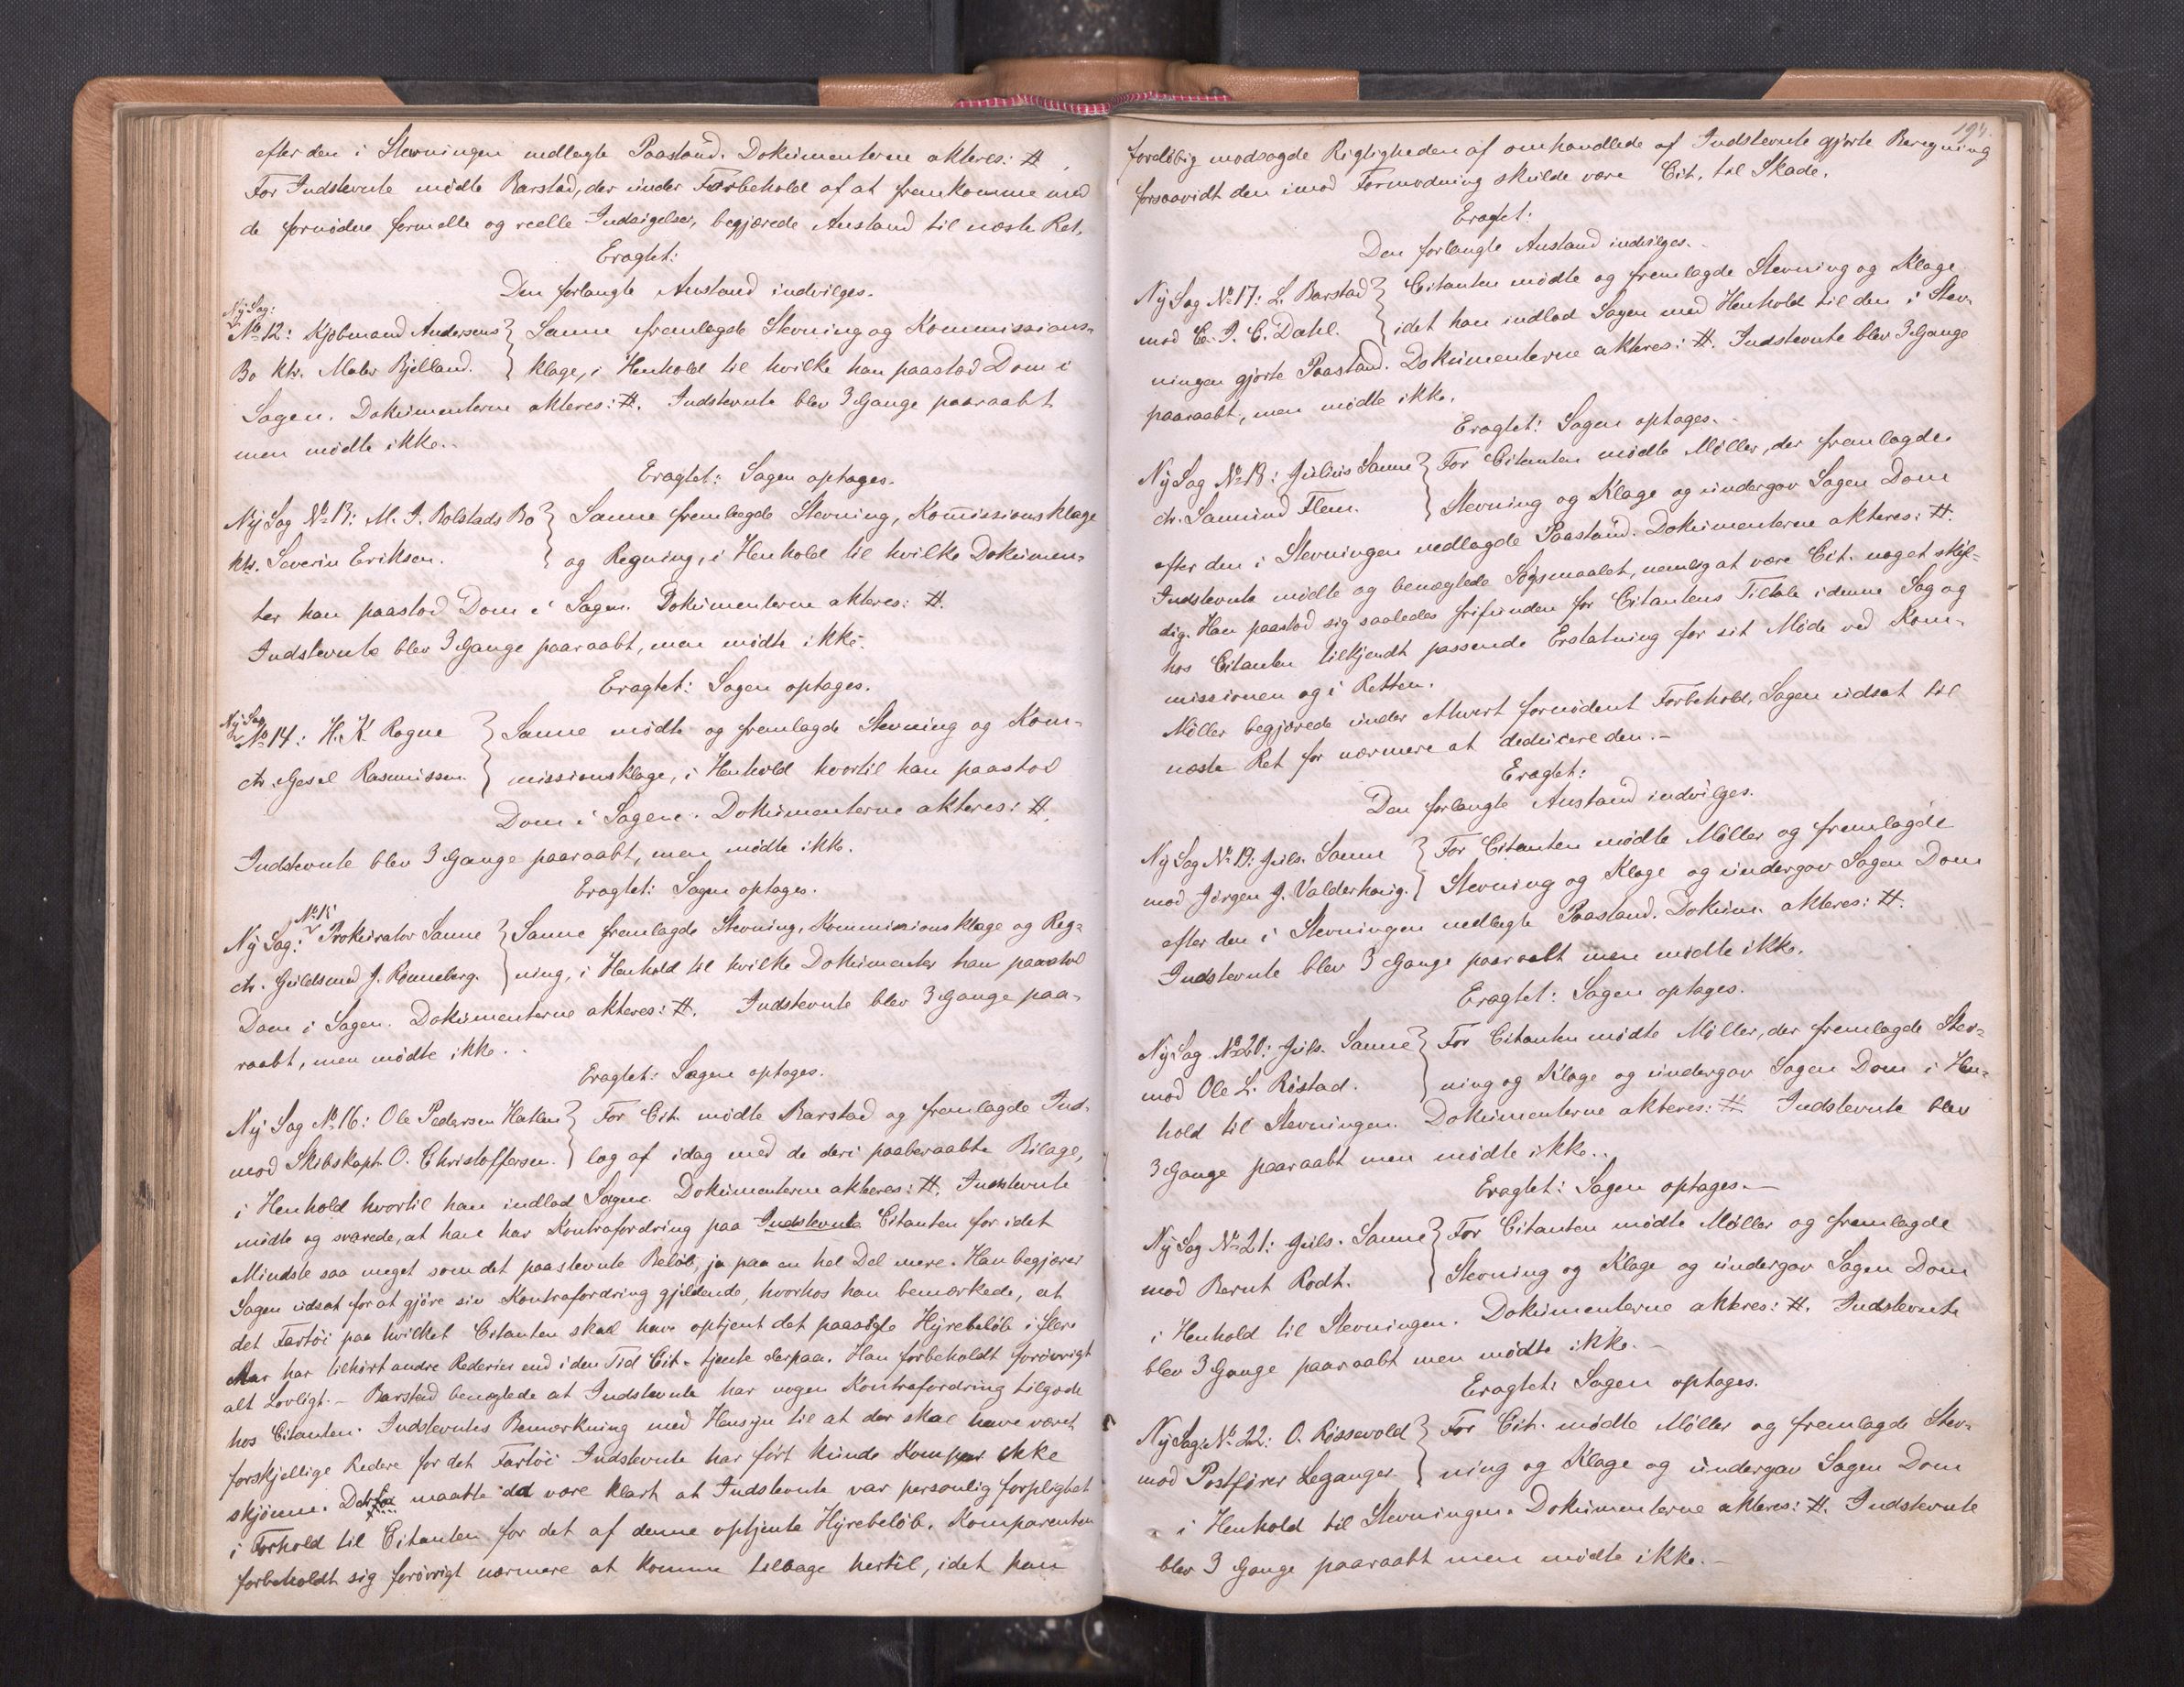 efter den i Stevningen nedlagte Paastand. Dokumenterne akteres: #
For Indstevnte mødte Barstad, der under Forbehold af at fremkomme med
de fornødne formelle og reelle Indsigelser, begjærede Anstand til næste Ret.
Eragtet:
Den forlangte Anstand indvilges.
Ny Sag:
No 12: Kjøbmand Andersens } Sanne fremlagde Stevning og Kommissions-
Bo ktr. Maler Bjelland. } klage, i Henhold til hvilke han paastod Dom i
Sagen. Dokumenterne akteres: #. Indstevnte blev 3 Gange paaraabt
men mødte ikke.
Eragtet: Sagen optages.
Ny Sag No 13: M. J. Bolstads Bo } Sanne fremlagde Stevning, Kommissionsklage
ktr. Severin Eriksen. } og Regning, i Henhold til hvilke Dokumen-
ter han paastod Dom i Sagen. Dokumenterne akteres: #.
Indstevnte blev 3 Gange paaraabt, men mødte ikke.
Eragtet: Sagen optages.
Ny Sag
No 14: H. K. Rogne } Sanne mødte og fremlagde Stevning og Kom-
ctr. Rasmussen. } missionsklage, i Henhold hvortil han paastod
Dom i Sagen. Dokumenterne akteres: #.
Indstevnte blev 3 Gange paaraabt, men mødte ikke.
Eragtet: Sagen optages.
No 15
Ny Sag: Prokurator Sanne } Sanne fremlagde Stevning, Kommissionsklage og Reg-
ctr. Guldsmed J. Rønneberg. } ning, i Henhold til hvilke Dokumenter han paastod
Dom i Sagen. Dokumenterne akteres: #. Indstevnte blev 3 Gange paa-
raabt, men mødte ikke.
Eragtet: Sagen optages.
Ny Sag No 16: Ole Pedersen Hatlen } For Cit. mødte Barstad og fremlagde Ind-
mod Skibskapt. O. Christoffersen. } læg af idag med de deri paaberaabte Bilage,
i Henhold hvortil han indlod Sagen. Dokumenterne akteres: #. Indstevnte
mødte og svarede, at han har Kontrafordring paa Indstevnte Citanten for idet
Mindste saa meget som det paastevnte Beløb, ja paa en hel Del mere. Han begjærer
Sagen udsat for at gjøre sin Kontrafordring gjeldende, hvorhos han bemærkede, at
det Fartøi paa hvilket Citanten skal have optjent det paasøgte Hyrebeløb i flere
Aar har tilhørt andre Rederier end i den Tid Cit. tjente derpaa. Han forbeholdt forøvrigt
alt Lovligt. – Barstad benegtede at Indstevnte har nogen Kontrafordring tilgode
hos Citanten. Indstevntes Bemærkning med Hensyn til at der skal have været
forskjellige Redere for det Fartøi Indstevnte har ført kunde Kompar. ikke
skjønne. Det maatte være klart at Indstevnte var personlig forpligtet
i Forhold til Citanten for det af denne optjente Hyrebeløb. Komparenten
forbeholdt sig forøvrigt nærmere at komme tilbage hertil, idet han
194.
foreløbig modsagde Rigtigheden af omhandlede af Indstevnte gjorte Beregning
forsaavidt den imod Formodning skulde være Cit. til Skade.
Eragtet:
Den forlangte Anstand indvilges.
Ny Sag No 17: L. Barstad } Citanten mødte og fremlagde Stevning og Klage
mod C. J. C. Dahl. } idet han indlod Sagen med Henhold til den i Stev-
ningen gjorte Paastand. Dokumenterne akteres: #. Indstevnte blev 3 Gange
paaraabt, men mødte ikke.
Eragtet: Sagen optages.
Ny Sag No 18: Julius Sanne } For Citanten mødte Møller, der fremlagde
ctr. Samund Flem. } Stevning og Klage og undergav Sagen Dom
efter den i Stevningen nedlagde Paastand. Dokumenterne akteres: #.
Indstevnte mødte og benegtede Søgsmaalet, nemlig at være Cit. noget skyl-
dig. Han paastod sig saaledes frifunden for Citantens Tiltale i denne Sag og
hos Citanten tilkjendt passende Erstatning for sit Møde ved Kom-
missionen og i Retten.
Møller begjærede under ethvert fornødent Forbehold, Sagen udsat til
næste Ret for nærmere at deducere den. –
Eragtet:
Den forlangte Anstand indvilges.
Ny Sag No 19: Juls. Sanne } For Citanten mødte Møller og fremlagde
mod Jørgen J. Valderhaug. } Stevning og Klage og undergav Sagen Dom
efter den i Stevningen nedlagte Paastand. Dokum. akteres: #.
Indstevnte blev 3 Gange paaraabt men mødte ikke.
Eragtet: Sagen optages.
Ny Sag No 20: Juls. Sanne } For Citanten mødte Møller, der fremlagde Stev-
mod Ole L. Røstad. } ning og Klage og undergav Sagen Dom i Hen-
hold til Stevningen. Dokumenterne akteres: #. Indstevnte blev
3 Gange paaraabt men mødte ikke.
Eragtet: Sagen optages. –
Ny Sag No 21: Juls. Sanne } For Citanten mødte Møller og fremlagde
mod Bernt Rødt. } Stevning og Klage og undergav Sagen Dom
i Henhold til Stevningen. Dokumenterne akteres: #. Indstevnte
blev 3 Gange paaraabt men mødte ikke. –
Eragtet: Sagen optages.
Ny Sag No 22: O. Røssevold } For Cit. mødte Møller og fremlagde Stev-
mod Postfører Leganger } ning og Klage og undergav Sagen Dom
i Henhold til Stevningen. Dokumenterne akteres: #. Indstevnte
blev 3 Gange paaraabt men mødte ikke. –